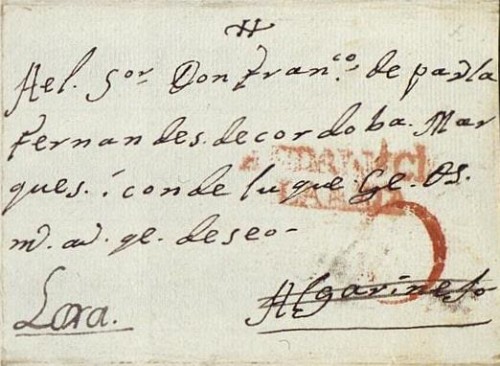 Ael. Sor Don Franco. de paula
Fernandes. de cordoba. Mar
ques. i conde luque Ge. Os.
m. a.d. qe. deseo-
ANDALUCIA
BAXA
Lora. Algarinejo